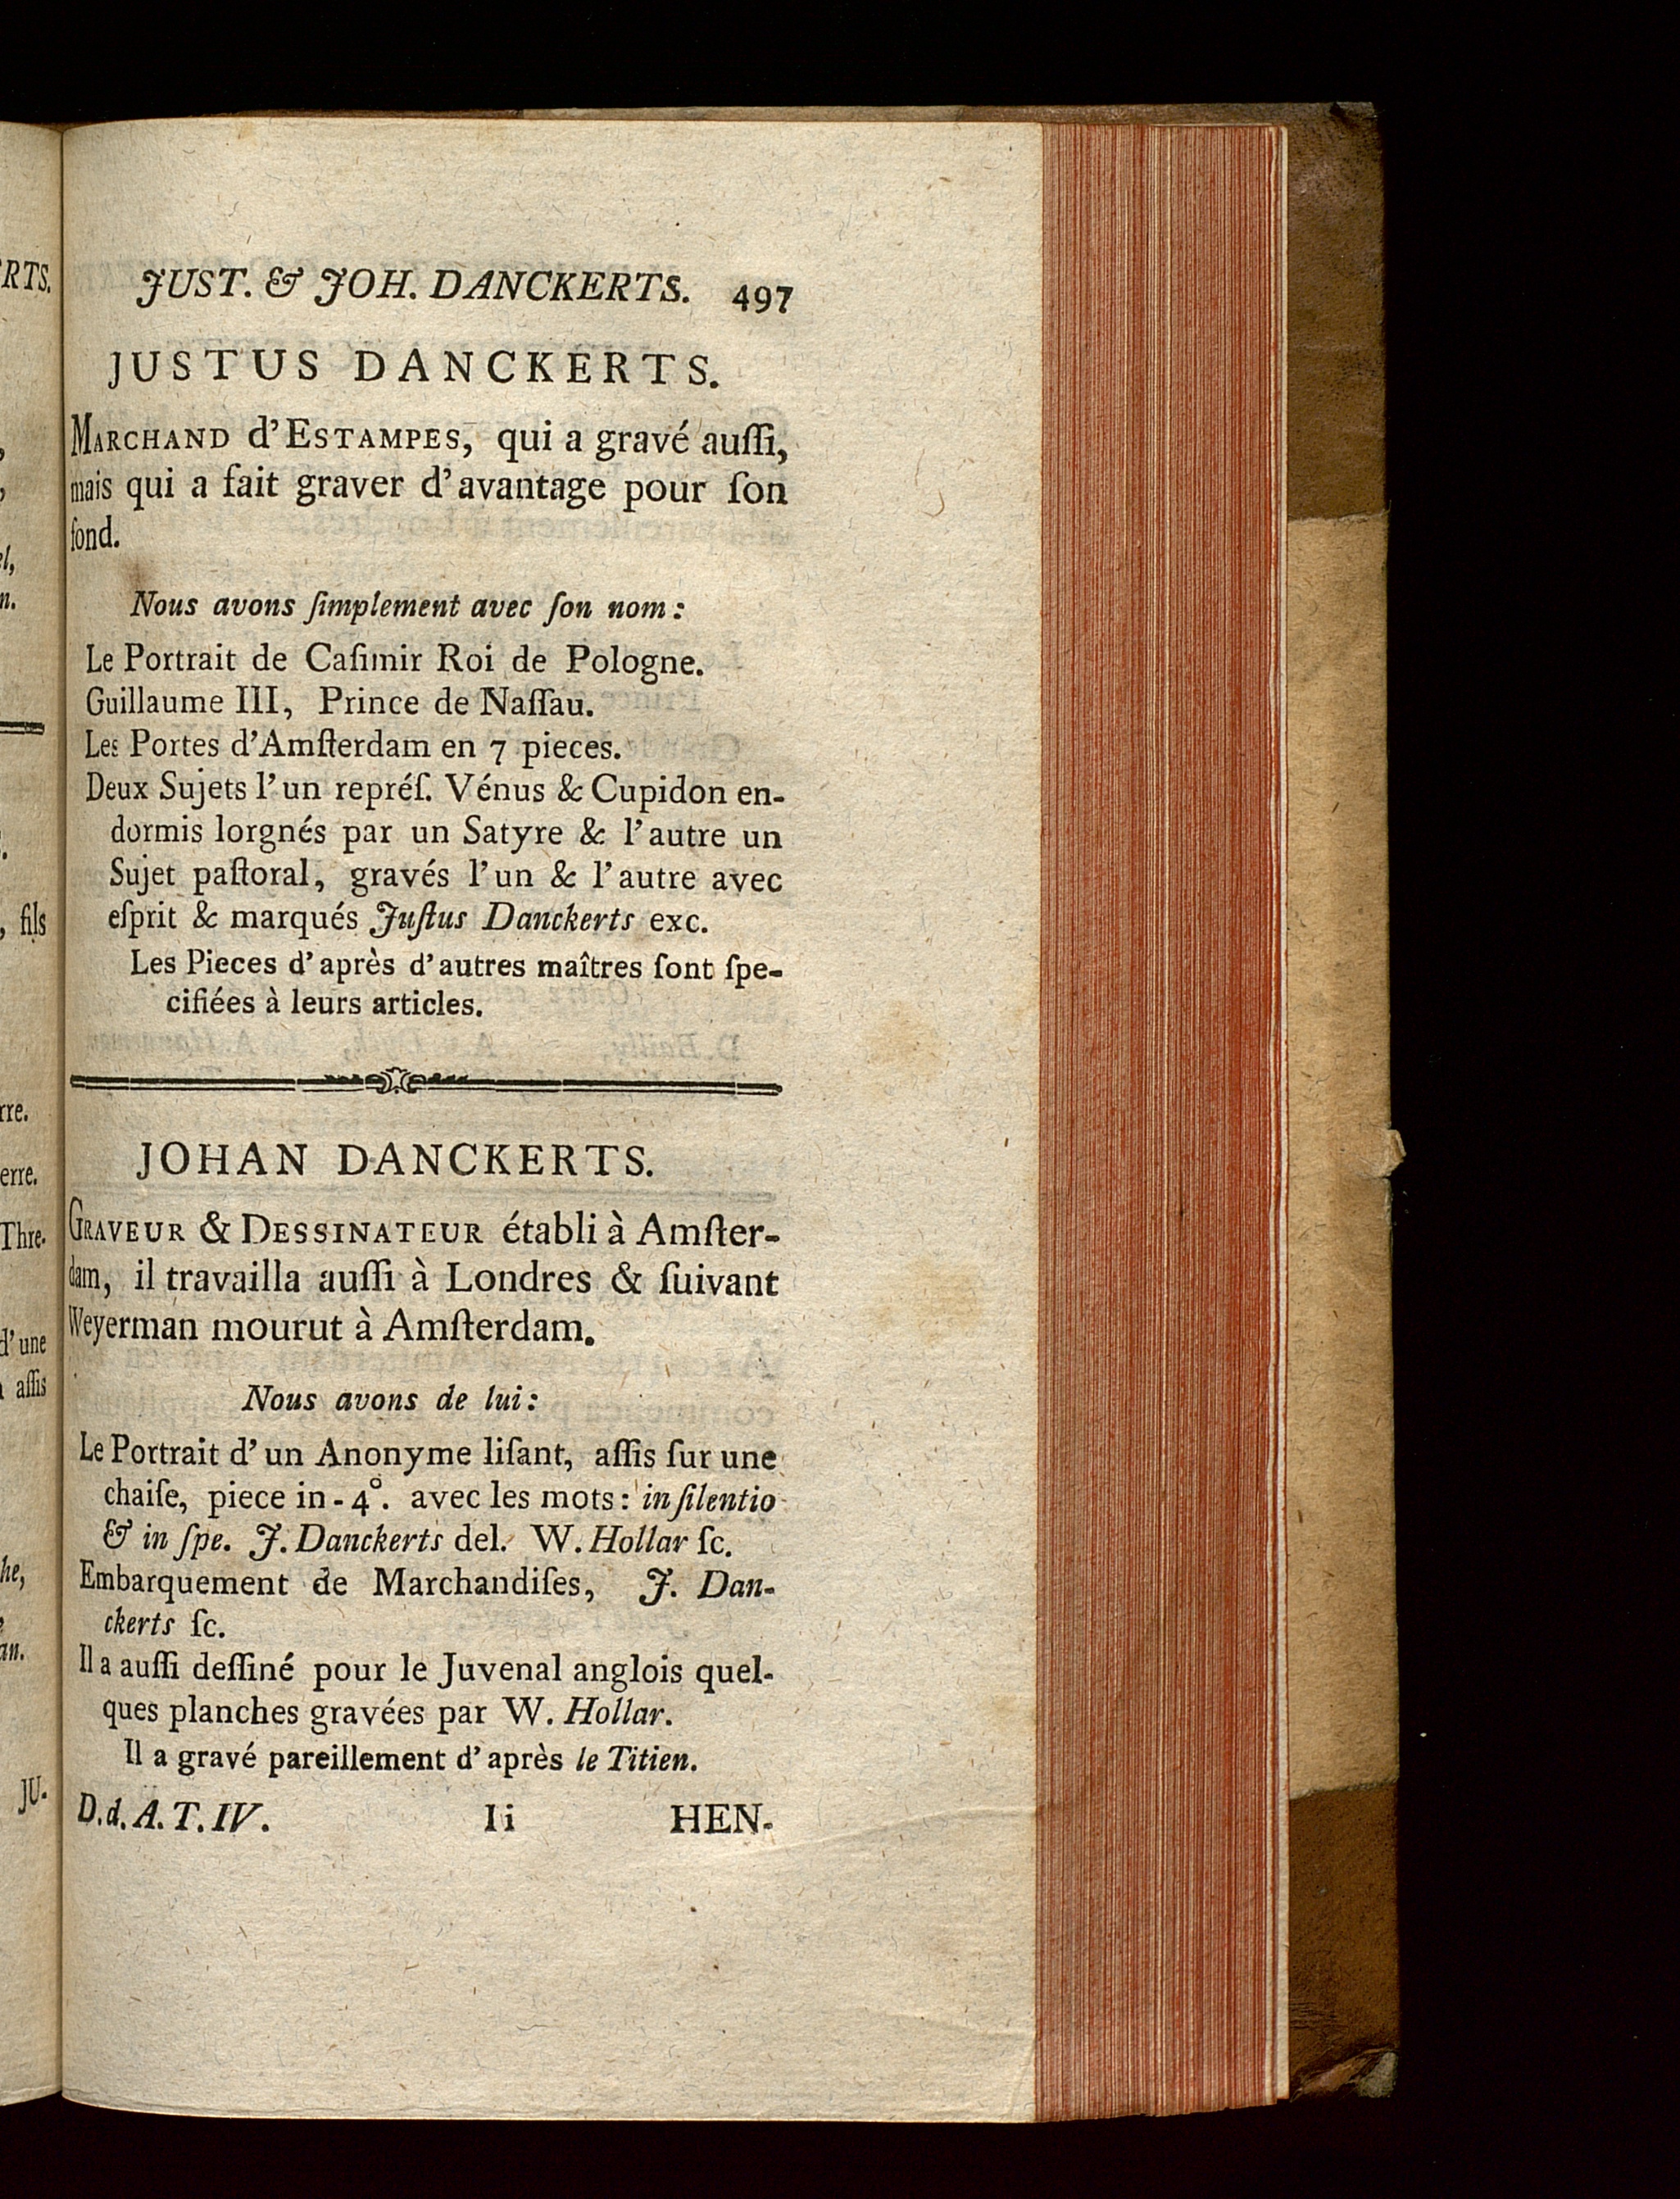 JUST. & JOH. DANCKERTS. 497
JUSTUS DANCKERTS.
MARCHAND d'ESTAMPES, qui a gravé auſſi,
mais qui a fait graver d'avantage pour ſon
fond.
Nous avons ſimplement avec ſon nom:
Le Portrait de Caſimir Roi de Pologne.
Guillaume III, Prince de Naſſau.
Les Portes d'Amſterdam en 7 pieces.
Deux Sujets l'un repréſ. Vénus & Cupidon en-
dormis lorgnés par un Satyre & l'autre un
Sujet paſtoral, gravés l'un & l'autre avec
eſprit & marqués Juſtus Danckerts exc.
Les Pieces d'après d'autres maîtres ſont ſpe-
cifiées à leurs articles.
JOHAN DANCKERTS.
GRAVEUR & DESSINATEUR établi à Amſter-
dam, il travailla auſſi à Londres & ſuivant
Weyerman mourut à Amſterdam.
Nous avons de lui:
Le Portrait d'un Anonyme liſant, aſſis ſur une
chaiſe, piece in-4°. avec les mots: in ſilentio
& in ſpe. J. Danckerts del. W. Hollar ſc.
Embarquement de Marchandiſes, J. Dan-
ckerts ſc.
Il a auſſi deſſiné pour le Juvenal anglois quel-
ques planches gravées par W. Hollar.
Il a gravé pareillement d'après le Titien.
D.d.A.T.IV. Ii HEN-
RTS.
el,
n.
, fils
rre.
erre.
Thre-
d'une
aſſis
he,
an.
JU-